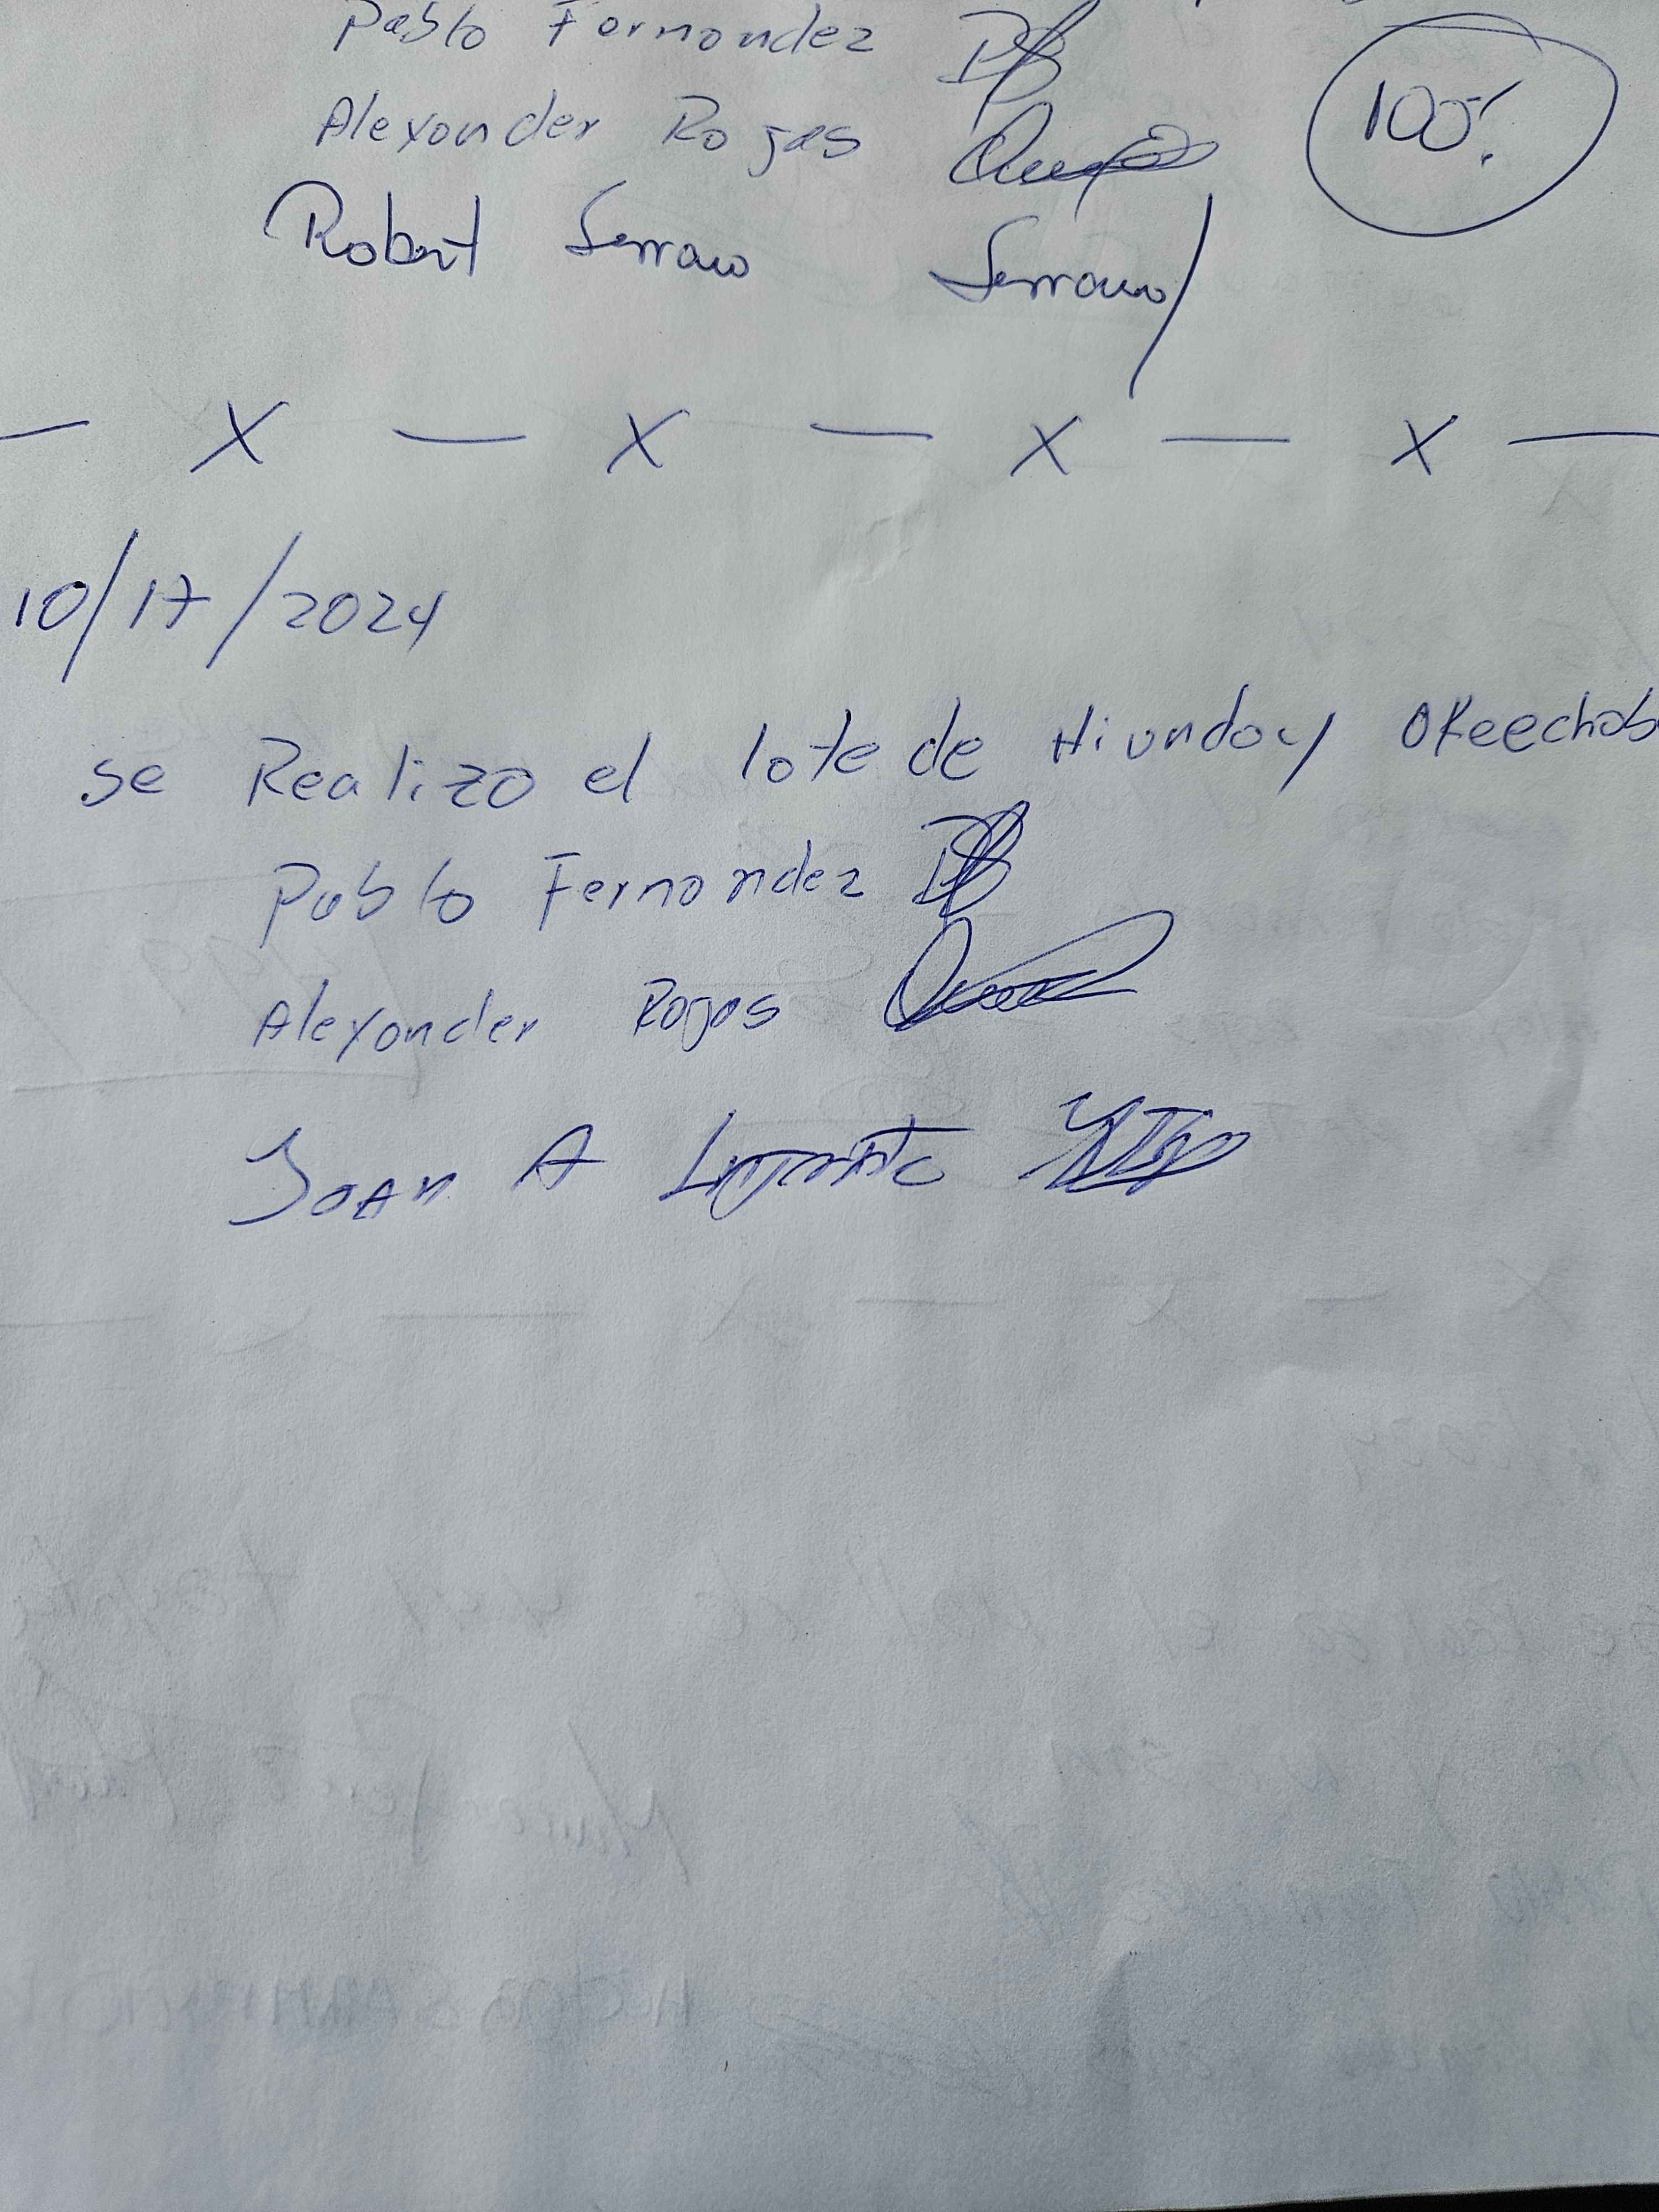 Pablo Fernandez
Alexander Rojas
100%
Robert Serrano Serrano
— X — X — X — X —
10/17/2024
se Realizo el lote de Hiunday Okeechob
Pablo Fernandez
Alexander Rojas
Joan A